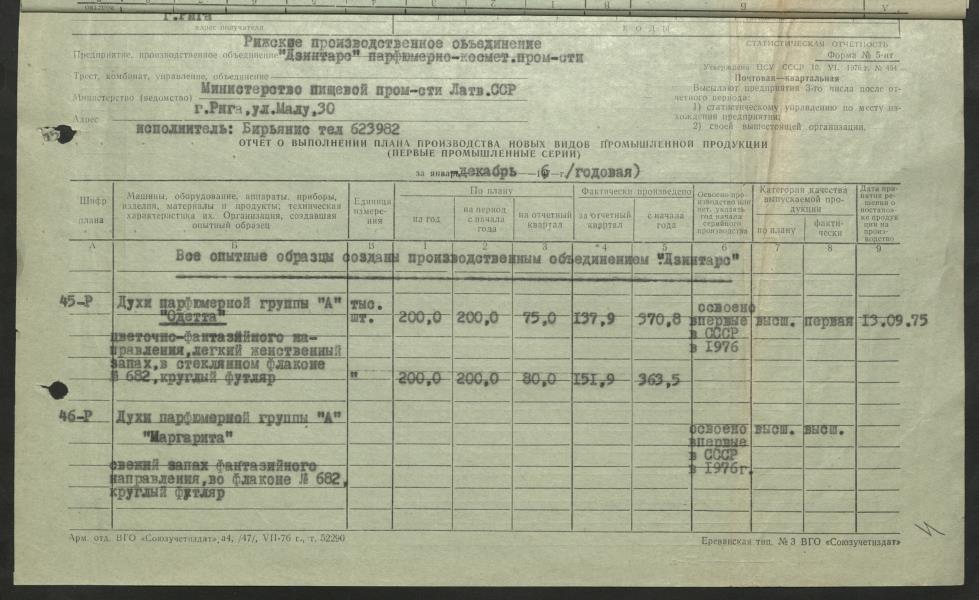 г.Рига
адрес получателя
Рижские производственное объединение
Предприятие, производственное объединение "Дзинтарс" парфюмерно-космет.пром-сти
Трест, комбинат, управление, объединение
Министерство пищевой пром-сти Латв.ССР
Министерство (ведомство)
г.Рига,ул.Малу,30
Адрес
исполнитель: Бирьянис тел 623982
СТАТИСТИЧЕСКАЯ ОТЧЕТНОСТЬ
Форма № 5-нт
Утверждена ЦСУ СССР 10. VI. 1976 г. № 454
Почтовая—квартальная
Высылают предприятия 3-го числа после отчетного периода:
1) статистическому управлению по месту нахождения предприятия;
2) своей вышестоящей организации.
ОТЧЕТ О ВЫПОЛНЕНИИ ПЛАНА ПРОИЗВОДСТВА НОВЫХ ВИДОВ ПРОМЫШЛЕННОЙ ПРОДУКЦИИ
(ПЕРВЫЕ ПРОМЫШЛЕННЫЕ СЕРИИ)
за январь декабрь 6 г. /годовая)
Шифр плана
Машины, оборудование, аппараты, приборы, изделия, материалы и продукты; техническая характеристика их. Организация, создавшая опытный образец
Единица измерения
По плану
на год
на период с начала года
на отчетный квартал
Фактически произведено
за отчетный квартал
с начала года
Освоено производство или нет, указать год начала серийного производства
Категория качества выпускаемой продукции
по плану
фактически
Дата принятия решения о постановке продукции на производство
А Б В 1 2 3 4 5 6 7 8 9
Все опытные образцы созданы производственным объединением "Дзинтарс"
45-Р Духи парфюмерной группы "А" тыс. освоено
"Одетта" шт. 200,0 200,0 75,0 137,9 370,8 впервые высш. первая 13.09.75
в СССР
цветочно-фантазийного на- в 1976
правления,легкий женственный
запах,в стеклянном флаконе
№ 682,круглый футляр " 200,0 200,0 80,0 151,9 363,5
46-Р Духи парфюмерной группы "А"
"Маргарита" освоено высш. высш.
впервые
в СССР
свежий запах фантазийного в 1976г.
направления,во флаконе № 682,
круглый футляр
Арм. отд. ВГО «Союзучетиздат», а4, /47/, VII-76 г., т. 52290
Ереванская тип. № 3 ВГО «Союзучетиздат»